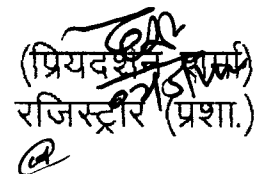 (प्रियदर्शन शर्मा)
रजिस्ट्रार (प्रशा.)